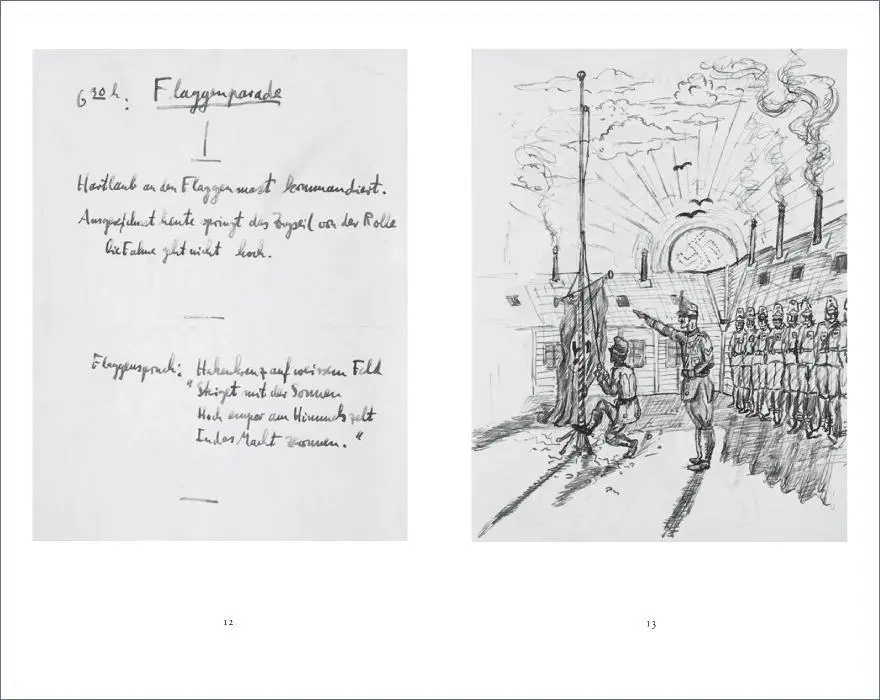 6 30 h: Flaggenparade
Hartlaub an den Flaggenmast kommandiert.
Ausgerechnet heute springt das Zugseil von der Rolle
Die Fahne geht nicht hoch.
Flaggenspruch: Hakenkreuz auf weissem Feld
"Steiget mit der Sonnen
Hoch empor am Himmelszelt
In das Macht
12
13